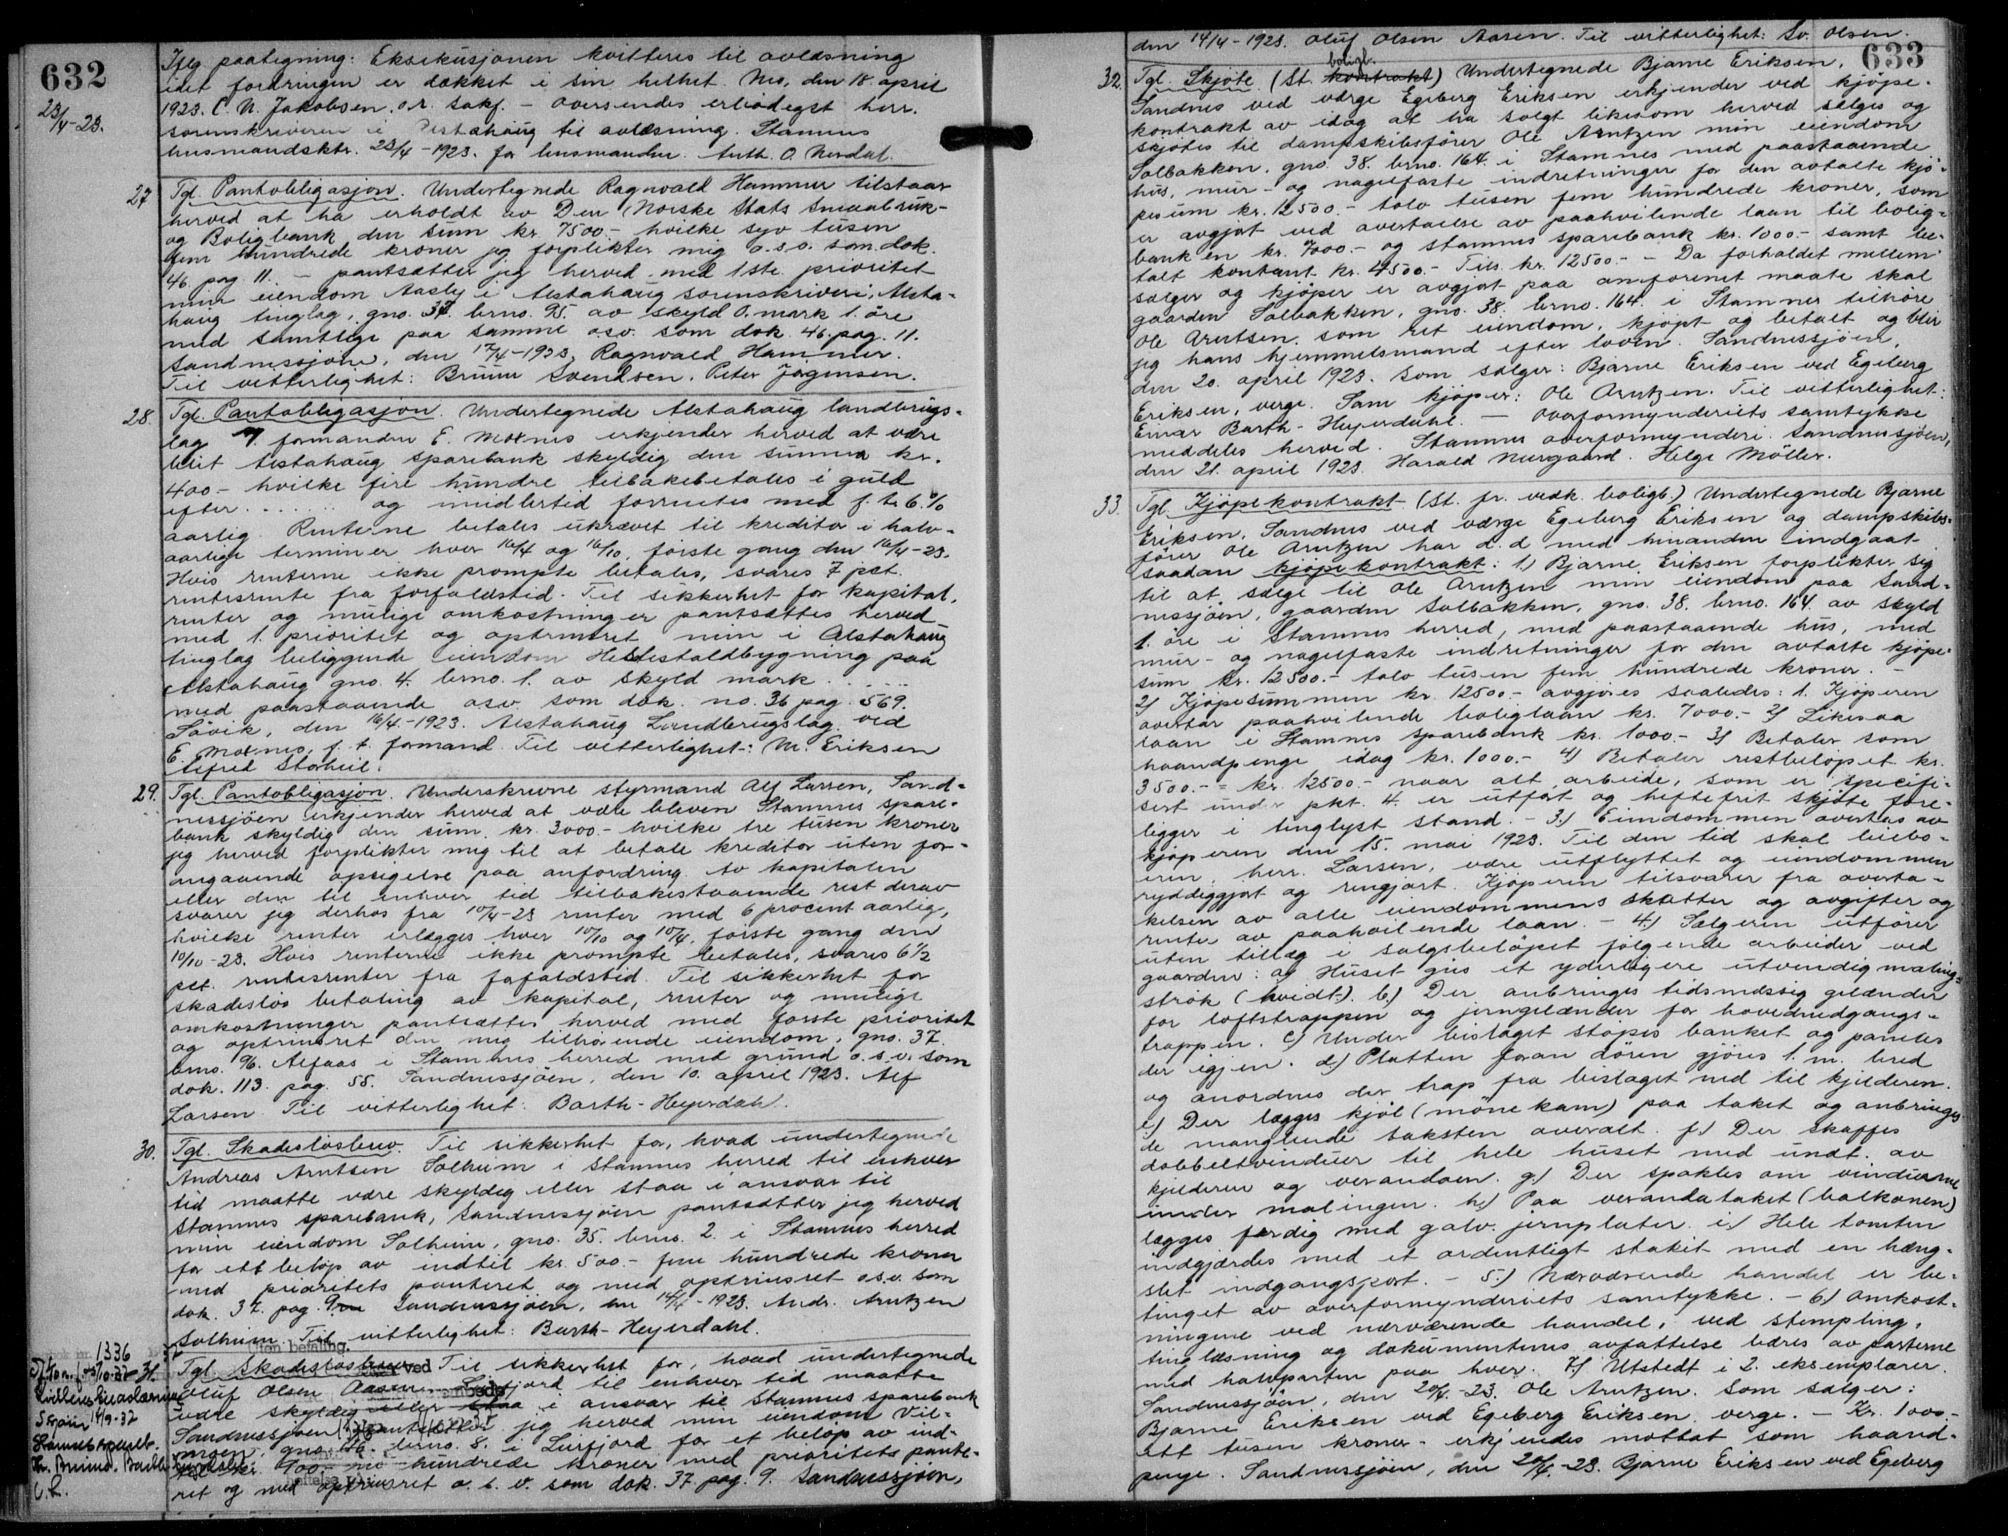 632
23/4-23.
Tgl. paategning: Eksekusjonen kvitteres til avlæsning
idet fordringen er dækket i sin helhet. Mo, den 18 april
1923. C. N. Jakobsen. o.r. sakf. - Oversendes erbødigst herr.
sorenskriveren i Alstahaug til avlæsning. Stamnes
husmandsktr. 23/4-1923. for husmanden. Anth. O. Nerdal.
27 Tgl. Pantobligasjon. Undertegnede Ragnvald Hammer tilstaar
herved at ha erholdt av Den Norske Stats Smaabruk-
og Boligbank den sum kr. 7500.- hvilke syv tusen
fem hundrede kroner jeg forplikter mig o.s.v. som dok.
46 pag. 11. - pantsætter jeg herved med 1ste prioritet
min eiendom Aasly i Alstahaug sorenskriveri, Alsta-
haug tinglag, gno. 37. brno. 95. av skyld 0. mark 1. øre
med samtlige paa samme o.s.v. som dok. 46. pag. 11.
Sandnessjøen, den 17/4-1923, Ragnvald Hammer.
Til vitterlighet: Bruun Svendsen. Peter Jørgensen.
28. Tgl. Pantobligasjon. Undertegnede Alstahaug landbrugs-
lag v. formanden E. Moxnes erkjender herved at være
blit Alstahaug sparebank skyldig den summa kr.
400.- hvilke fire hundre tilbakebetales i guld
efter ....... og imidlertid forrentes med f. t. 6.%
aarlig. Renterne betales ukrævet til kreditor i halv-
aarlige terminer hver 16/4 og 16/10, første gang den 16/4-23.
Hvis renterne ikke prompte betales, svares 7 pct.
rentesrente fra forfaldstid. Til sikkerhet for kapital,
renter og mulige omkostninger pantsættes herved
med 1. prioritet og optrinsret min i Alstahaug
tinglag beliggende eiendom Hestestaldbygning paa
Alstahaug gno. 4. brno. 1. av skyld mark .......
med paastaaende osv. som dok. no. 36 pag. 569.
Søvik, den 16/4-1923. Alstahaug Landbrugslag ved
E. Moxnes, f. t. formand. Til vitterlighet: M. Eriksen
Alfred Storheil.
29. Tgl. Pantobligasjon. Underskrevne styrmand Alf Larsen, Sand-
nessjøen erkjender herved at være bleven Stamnes spare-
bank skyldig den sum kr. 3000.- hvilke tre tusen kroner
jeg herved forplikter mig til at betale kreditor uten for-
utgaaende opsigelse paa anfordring. Av kapitalen
eller den til enhver tid tilbakestaaende rest derav
svarer jeg derhos fra 10/4-23 renter med 6 procent aarlig,
hvilke renter erlægges hver 10/10 og 10/4, første gang den
10/10-23. Hvis renterne ikke prompte betales, svares 6 1/2
pct. rentesrenter fra fofaldstid. Til sikkerhet for
skadesløs betaling av kapital, renter og mulige
omkostninger pantsættes herved med første prioritet
og optrinsret den mig tilhørende eiendom, gno. 37.
brno. 96. Alfaas i Stamnes herred med grund o.s.v. som
dok. 113. pag. 55. Sandnessjøen, den 10. april 1923. Alf
Larsen Til vitterlighet: Barth-Heyerdahl.
30. Tgl. Skadesløsbrev. Til sikkerhet for, hvad undertegnede
Andreas Arntsen Solheim i Stamnes herred til enhver
tid maatte være skyldig eller staa i ansvar til
Stamnes sparebank, Sandnessjøen pantsætter jeg herved
min eiendom Solheim, gno. 35. brno. 2. i Stamnes herred
for ett beløp av indtil kr. 500.- fem hundrede kroner
med prioritets panteret og med optrinsret o.s.v. som
dok. 37. pag. 9. Sandnessjøen, den 14/4-1923. Andr. Arntzen
Solheim. Til vitterlighet: Barth-Heyerdahl.
1336 Uten betaling.
31. Tgl. Skadesløsbrev. Til sikkerhet for, hvad undertegnede
Oluf Olsen Aasen, Leirfjord til enhver tid maatte
være skyldig eller staa i ansvar til Stamnes sparebank
Sandnessjøen pantsætter jeg herved min eiendom Vil-
moen, gno. brno. 8. i Leirfjord for et beløp av ind-
til kr. hundrede kroner med prioritets pante-
ret og med optrinsret o. s. v. som dok. 37. pag. 9. Sandnessjøen,
633
den 14/4-1923. Oluf Olsen Aasen. Til vitterlighet: Sv. Olsen.
boligb.
32. Tgl. Skjøte (St. kontrakt) Undertegnede Bjarne Eriksen,
Sandnes ved værge Egeberg Eriksen erkjender ved kjøpe-
kontrakt av idag at ha solgt likesom herved selges og
skjøtes til dampskibsfører Ole Arntzen min eiendom
Solbakken, gno. 38. brno. 164. i Stamnes med paastaaende
hus, mur- og nagelfaste indretninger for den avtalte kjø-
pesum kr. 12500.- tolv tusen fem hundrede kroner, som
er avgjort ved overtaelse av paahvilende laan til bolig-
banken kr. 7000.- og Stamnes sparebank kr. 1000.- samt be-
talt kontant kr. 4500.- Tils. kr. 12500.- - Da forholdet mellem
sælger og kjøper er avgjort paa omforenet maate skal
gaarden Solbakken, gno. 38. brno. 164. i Stamnes tilhøre
Ole Arntsen, som ret eiendom, kjøpt og betalt og blir
jeg hans hjemmelsmand efter loven. Sandnessjøen,
den 20. april 1923. Som sælger: Bjarne Eriksen ved Egeberg
Eriksen, verge. Som kjøper: Ole Arntzen. Til vitterlighet:
Einar Barth-Heyerdahl. - Overformynderiets samtykke
meddeles herved. Stamnes overformynderi. Sandnessjøen,
den 21. april 1923. Harald Nergaard. Helge Møller.
33. Tgl. Kjøpekontrakt (St. fr. vedk. boligb.) Undertegnede Bjarne
Eriksen, Sandnes ved værge Egeberg Eriksen og dampskibs-
fører Ole Arntzen har d. d. med hinanden indgaat
saadan kjøpekontrakt: 1) Bjarne Eriksen forplikter sig
til at sælge til Ole Arntzen min eiendom paa Sand-
nessjøen, gaarden Solbakken, gno. 38. brno. 164. av skyld
1. øre i Stamnes herred, med paastaaende hus, med
mur- og nagelfaste indretninger for den avtalte kjøpe-
sum kr. 12500.- tolv tusen fem hundrede kroner. -
2) Kjøpesummen kr. 12500.- avgjøres saaledes: 1. Kjøperen
overtar paahvilende boliglaan kr. 7000.- 2) Likesaa
laan i Stamnes sparebank kr. 1000.- 3) Betaler som
haandpenge idag kr. 1000.- 4) Betaler restbeløpet kr.
3500.- = kr. 12500.- naar alt arbeide, som er specifi-
sert under pkt. 4. er utført og heftefrit skjøte fore-
ligger i tinglyst stand. - 3.) Eiendommen overtas av
kjøperen den 15. mai 1923. Til den tid skal leiebo-
eren, herr. Larsen, være utflyttet og eiendommen
ryddiggjort og rengjort. Kjøperen tilsvarer fra overta-
kelsen av alle eiendommens skatter og avgifter og
renter av paahvilende laan. - 4.) Sælgeren utfører
uten tillæg i salgsbeløpet følgende arbeider ved
gaarden: a) Huset gies et yderligere utvendig maling-
strøk (hvidt.) b.) Der anbringes tidsmæssig gelænder
for loftstrappen og jerngelænder for hovedindgangs-
trappen. c) Under bislaget støpes banket og paneles
der igjen. d.) Platten foran døren gjøres 1. m. bred
og anordnes der trap fra bislaget ned til kjelderen.
e.) Der lægges kjøl (mønekam) paa taket og anbringes
de manglende taksten overalt. f.) Der skaffes
dobbeltvinduer til hele huset med undt. av
kjelderen og verandaen. g.) Der spakles om vinduerne
under malingen. h.) Paa verandataket (balkonen)
lægges færdig med galv. jernplater. i.) Hele tomten
indgjærdes med et ordentligt stakit med en hæng-
slet indgangsport. - 5.) Nærværende handel er be-
tinget av overformynderiets samtykke. - 6.) Omkost-
ningene ved nærværende handel, ved stempling,
tinglæsning og dokumentenes avfattelse bæres av parterne
med halvparten paa hver. 7.) Utstedt i 2. eksemplarer.
Sandnessjøen, den 20/4-23. Ole Arntzen. Som sælger:
Bjarne Eriksen ved Egeberg Eriksen. verge. - Kr. 1000.-
ett tusen kroner - erkjendes mottat som haand-
penge. Sandnessjøen, den 20/4-23. Bjarne Eriksen ved Egeberg